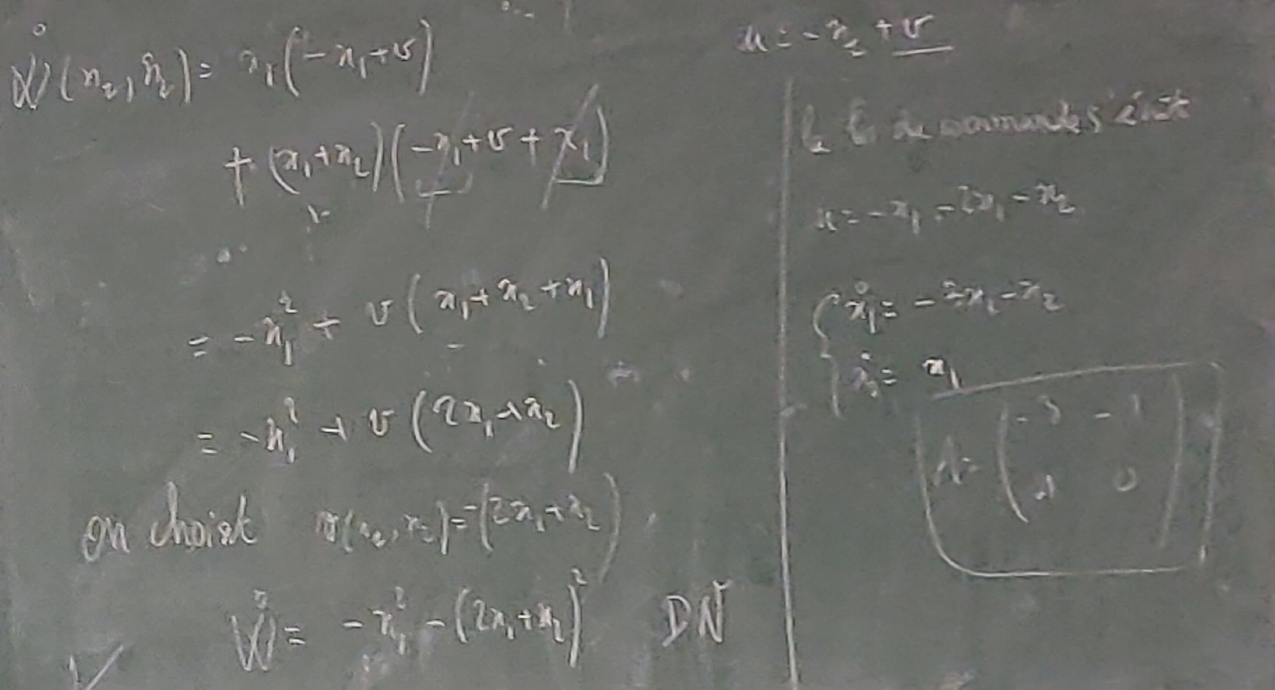 Ẇ(x₂, x₂) = x₁(-x₁+v)
+ (x₁+x₂)(-x₁+v+x₁)
= -x₁² + v(x₁+x₂+x₁)
= -x₁² + v(2x₁+x₂)
on choisit v(x₂, x₂) = -(2x₁+x₂)
Ẇ = -x₁² - (2x₁+x₂)² DN
de commande s'écrit
u = -x₁ - 2x₁ - x₂
ẋ₁ = -3x₁ - x₂
ẋ₂ = x₁
A = (-3 -1
1 0)